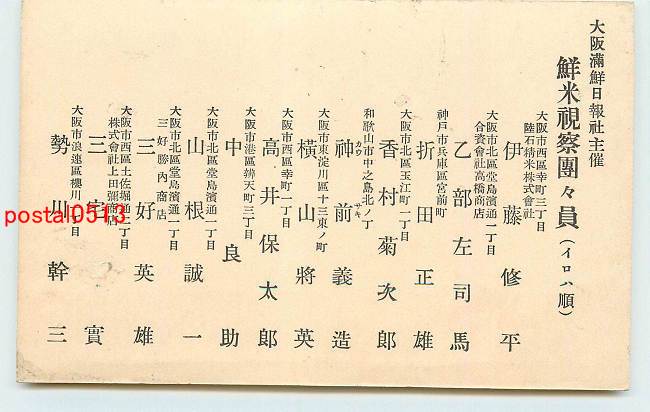 大阪滿鮮日報社主催
鮮米視察團々員（イロハ順）
大阪市西區幸町三丁目
陸石精米株式會社
伊藤修平
大阪市北區堂島濱通一丁目
合資會社高橋商店
乙部左司馬
神戸市兵庫區宮前町
折田正雄
大阪市北區玉江町一丁目
香村菊次郎
和歌山市中之島北ノ丁
神前義造
カウ サキ
大阪市東淀川區十三東ノ町
橫山將英
大阪市西區幸町一丁目
高井保太郎
大阪市港區辨天町三丁目
中良助
大阪市北區堂島濱通一丁目
山根誠一
大阪市北區堂島濱通二丁目
三好勝內商店
三好英雄
大阪市西區土佐堀通二丁目
株式會社上田彌商店
三宅實
大阪市浪速區櫻川 丁目
勢川幹三
postal0513